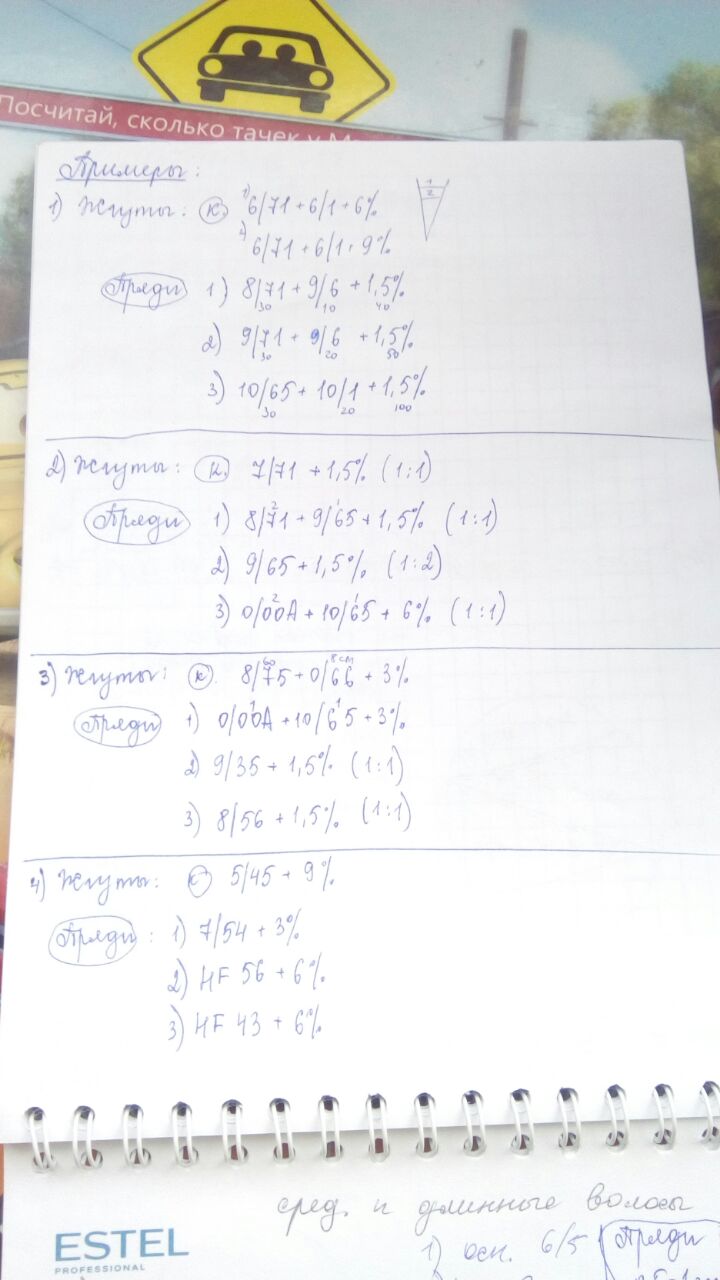 Посчитай, сколько тачек у М
Примеры:
1) Жгуты: К. 1) 6/71 + 6/1 + 6%
1
2
2) 6/71 + 6/1 + 9%
Пряди 1) 8/71 + 9/6 + 1,5%
30 10 40
2) 9/71 + 9/6 + 1,5%
30 20 50
3) 10/65 + 10/1 + 1,5%
30 20 100
2) Жгуты: К. 7/71 + 1,5% (1:1)
2 1
Пряди 1) 8/71 + 9/65 + 1,5% (1:1)
2) 9/65 + 1,5% (1:2)
2 1
3) 0/00A + 10/65 + 6% (1:1)
60 8 см
3) Жгуты: К. 8/75 + 0/66 + 3%
1 1
Пряди 1) 0/00A + 10/65 + 3%
2) 9/35 + 1,5% (1:1)
3) 8/56 + 1,5% (1:1)
4) Жгуты: К 5/45 + 9%
Пряди: 1) 7/54 + 3%
2) HF 56 + 6%
3) HF 43 + 6%
сред. и длинные волосы
1) осн. 6/5 Пряди
ESTEL
PROFESSIONAL